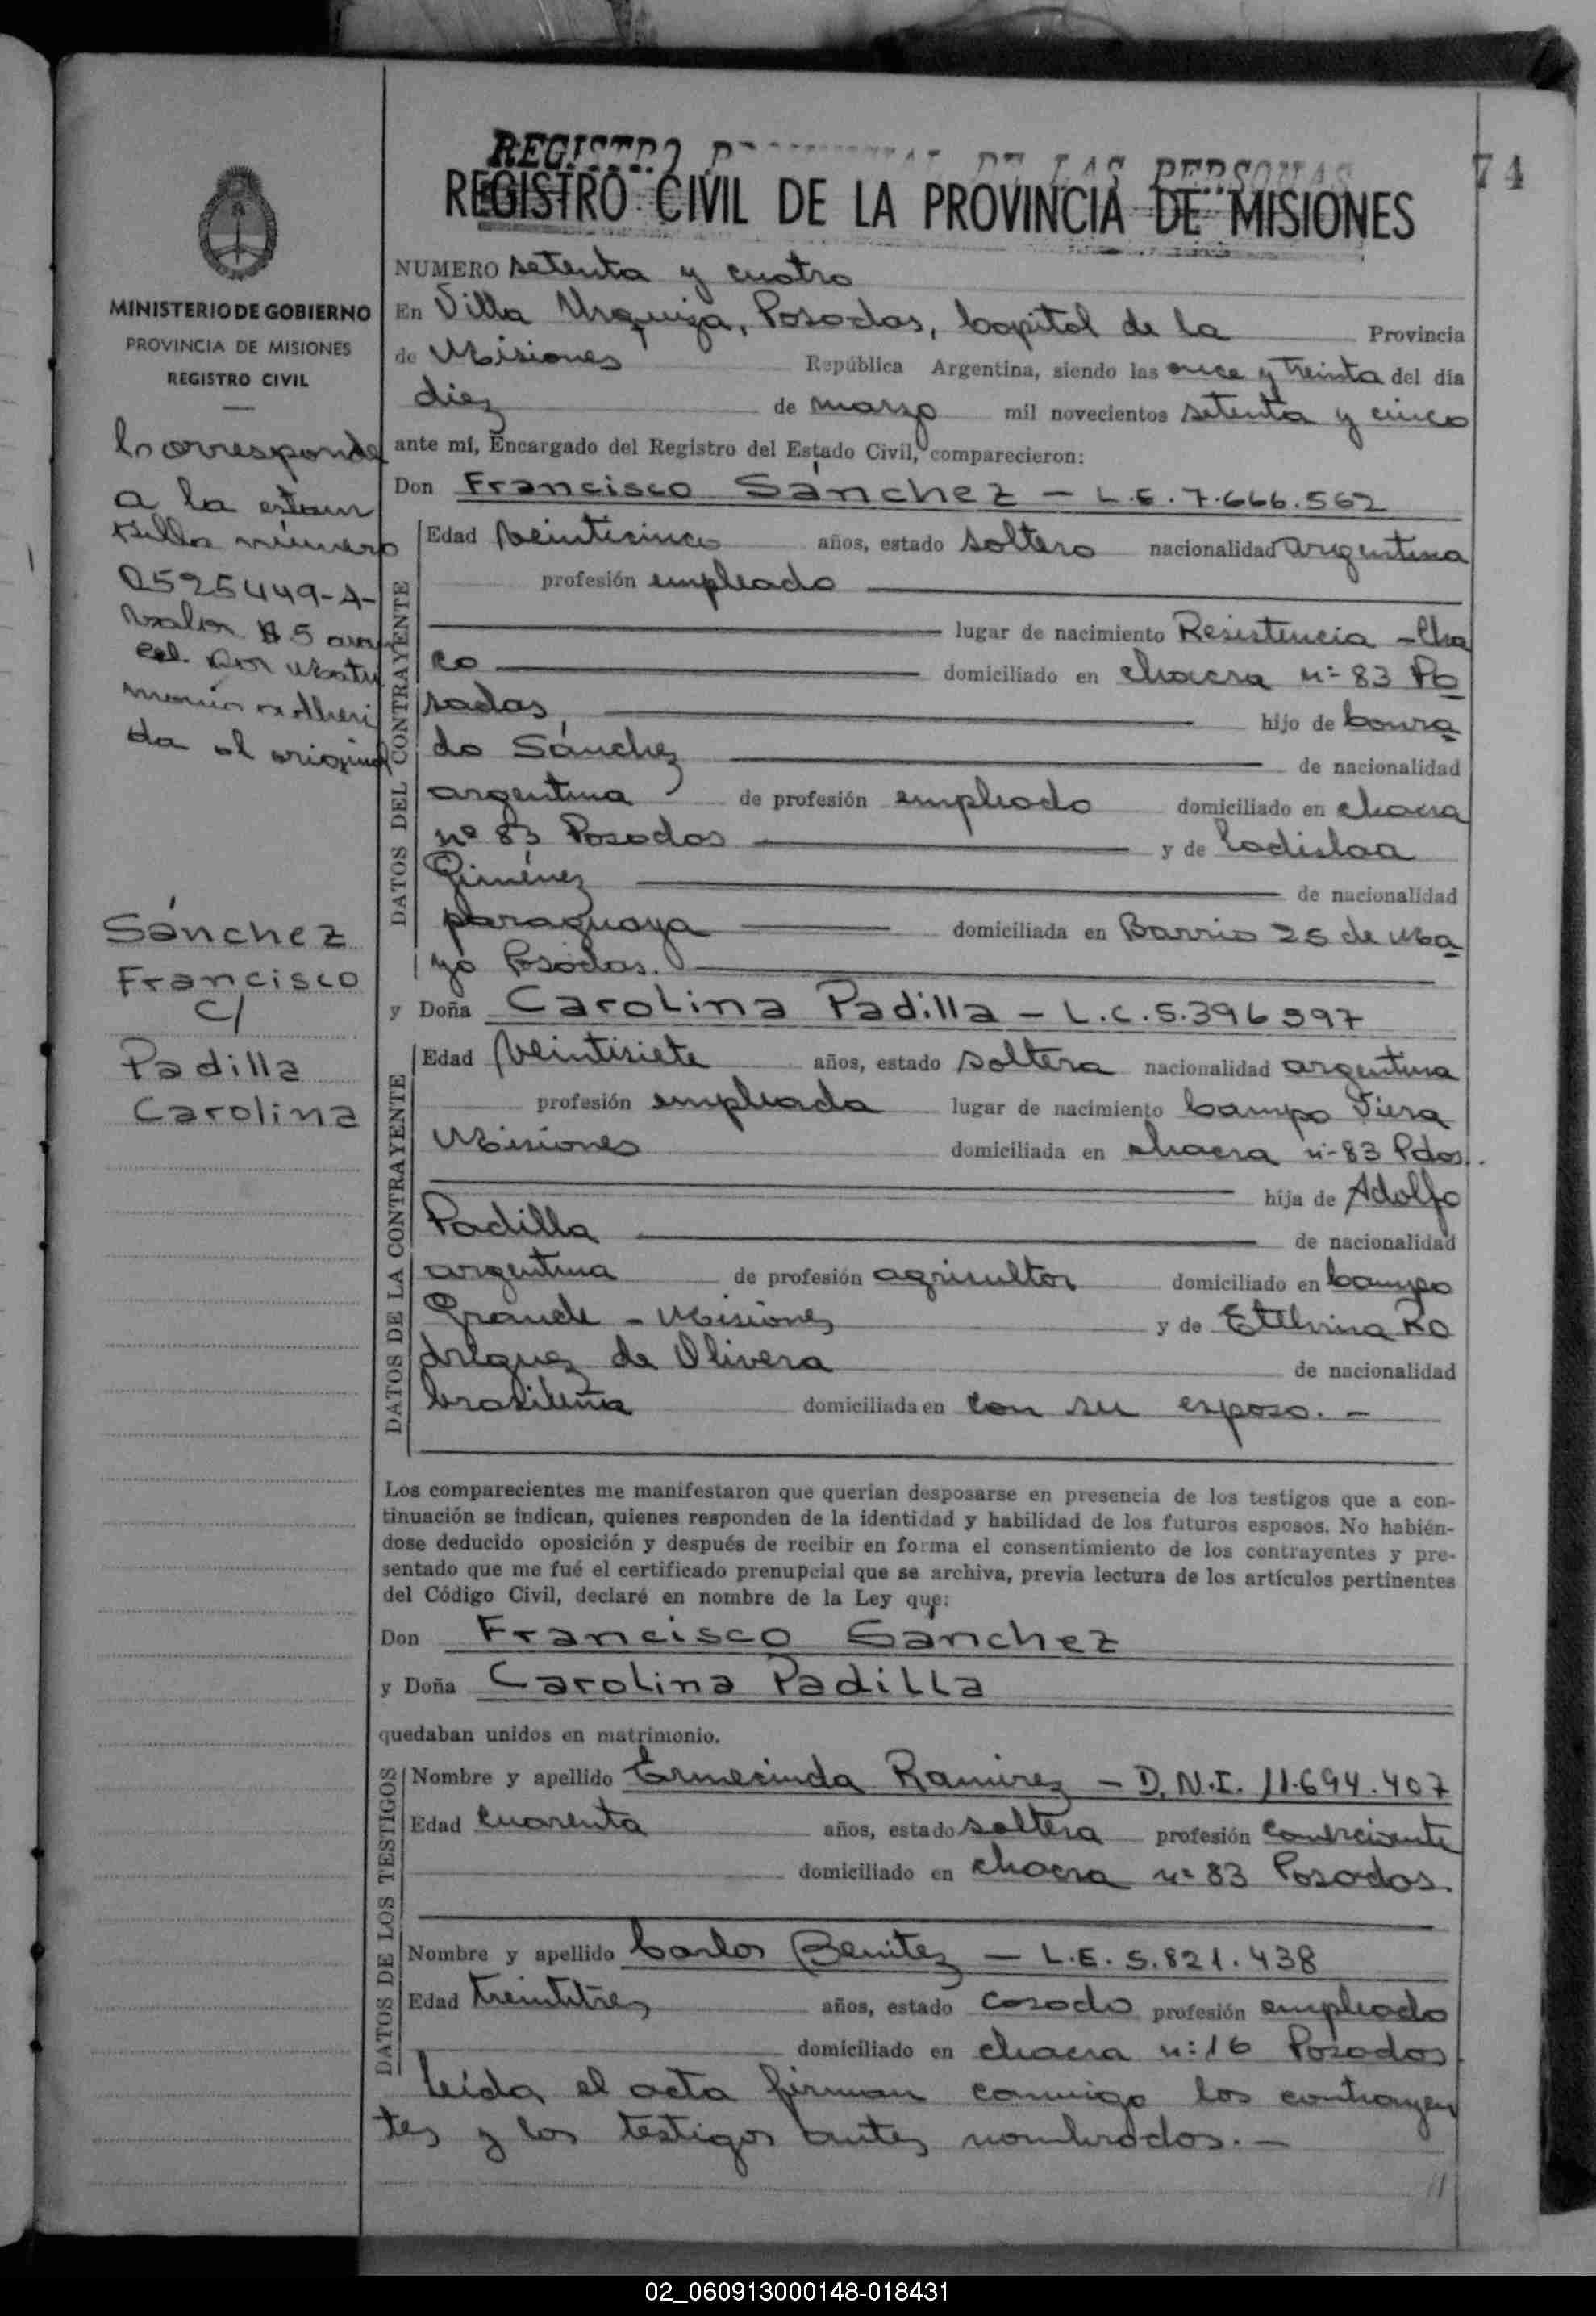 REGISTRO PROVINCIAL DE LAS PERSONAS
74
REGISTRO CIVIL DE LA PROVINCIA DE MISIONES
MINISTERIO DE GOBIERNO
PROVINCIA DE MISIONES
REGISTRO CIVIL
Corresponde
a la estam
pilla número
0525449-A-
valor $ 5 aran
cel. por Matri
monio adheri
da al original
Sánchez
Francisco
C/
Padilla
Carolina
NUMERO setenta y cuatro
En Villa Urquiza, Posadas, Capital de la Provincia
de Misiones República Argentina, siendo las once y treinta del día
diez de marzo mil novecientos setenta y cinco
ante mí, Encargado del Registro del Estado Civil, comparecieron:
Don Francisco Sánchez - L.E. 7.666.562
DATOS DEL CONTRAYENTE
Edad veinticinco años, estado soltero nacionalidad argentina
profesión empleado
lugar de nacimiento Resistencia - Cha
co domiciliado en chacra nº 83 Po
sadas, hijo de Conra
do Sánchez de nacionalidad
argentina de profesión empleado domiciliado en chacra
nº 83 Posadas y de Ladislaa
Giménez de nacionalidad
paraguaya domiciliada en Barrio 25 de Ma
yo Posadas.
y Doña Carolina Padilla - L.C. 5.396597
DATOS DE LA CONTRAYENTE
Edad veintisiete años, estado soltera nacionalidad argentina
profesión empleada lugar de nacimiento Campo Viera
Misiones domiciliada en chacra nº 83 Pdas.
hija de Adolfo
Padilla de nacionalidad
argentina de profesión agricultor domiciliado en Campo
Grande - Misiones y de Etelvina Ro
driguez de Olivera de nacionalidad
brasileña domiciliada en con su esposo. -
Los comparecientes me manifestaron que querían desposarse en presencia de los testigos que a con-
tinuación se indican, quienes responden de la identidad y habilidad de los futuros esposos. No habién-
dose deducido oposición y después de recibir en forma el consentimiento de los contrayentes y pre-
sentado que me fué el certificado prenupcial que se archiva, previa lectura de los artículos pertinentes
del Código Civil, declaré en nombre de la Ley que:
Don Francisco Sánchez
y Doña Carolina Padilla
quedaban unidos en matrimonio.
DATOS DE LOS TESTIGOS
Nombre y apellido Ermecinda Ramirez - D.N.I. 11.694.407
Edad cuarenta años, estado soltera profesión comerciante
domiciliado en chacra nº 83 Posadas.
Nombre y apellido Carlos Benitez - L.E. 5.821.438
Edad treintitres años, estado casado profesión empleado
domiciliado en chacra nº 16 Posadas.
Leída el acta firman conmigo los contrayen
tes y los testigos antes nombrados. -
02_060913000148-018431